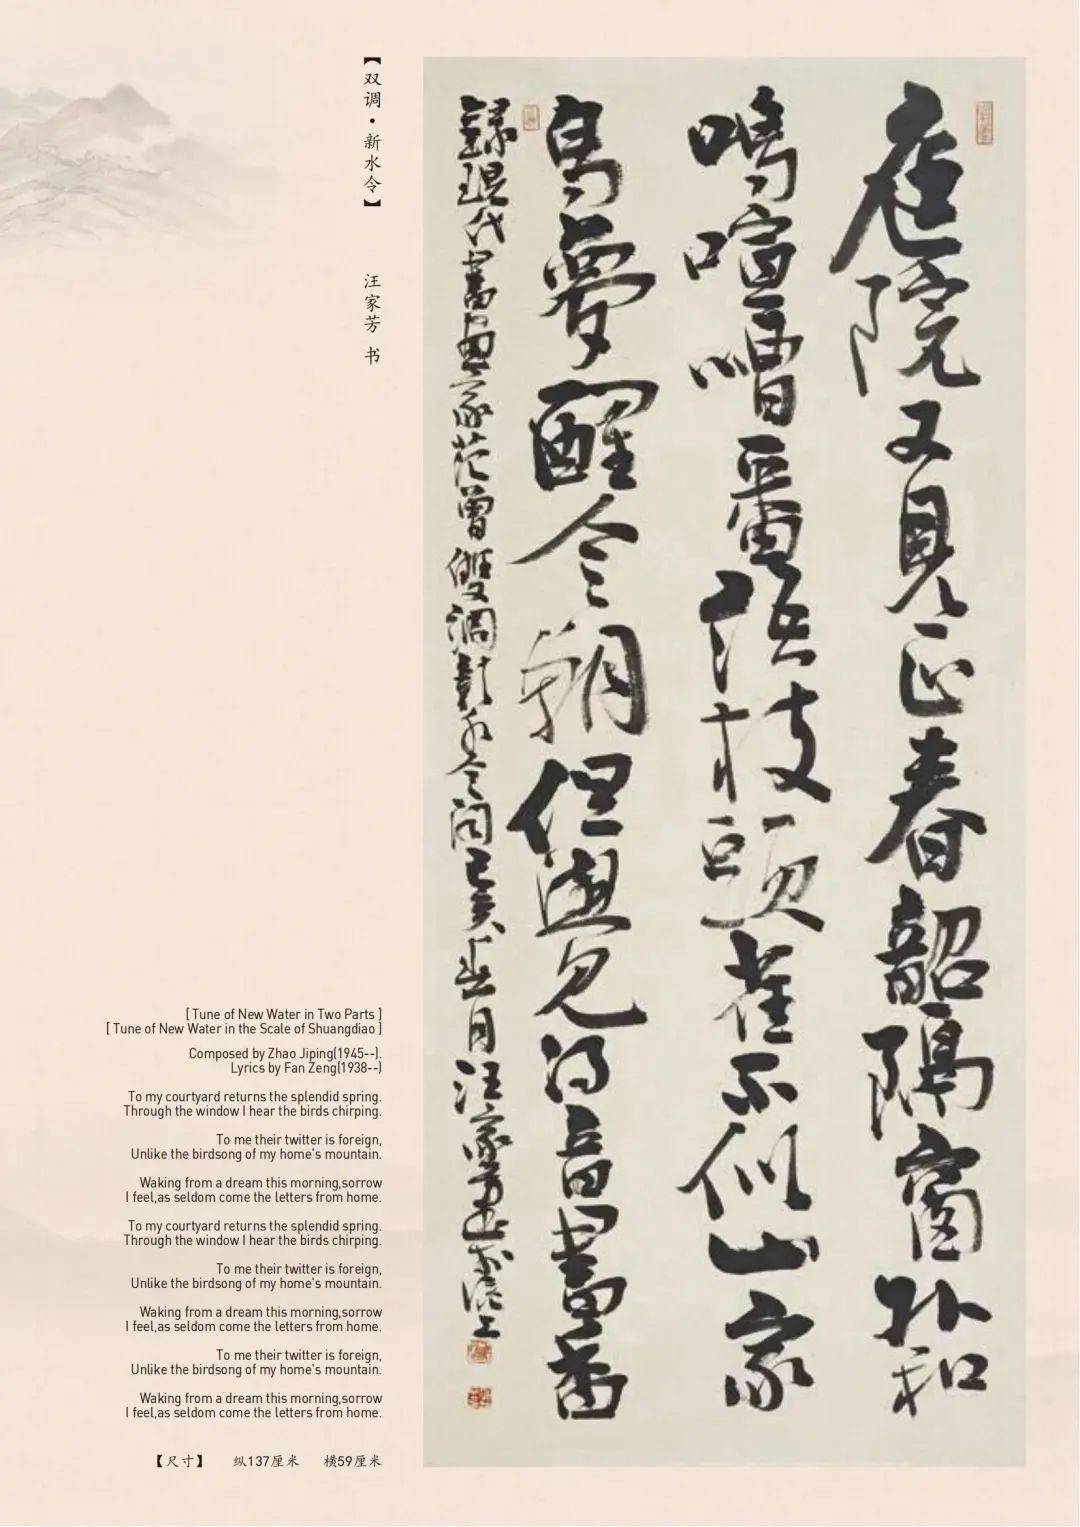 【双调·新水令】 汪家芳 书
庭院又見正春韶隔窗外和
鳴喧嘈番語枝頭雀不似山家
鳥夢醒今朝但見得音書杳
錄現代書畫家范曾雙調新水令己亥月汪家芳書於滬上
[ Tune of New Water in Two Parts ]
[ Tune of New Water in the Scale of Shuangdiao ]
Composed by Zhao Jiping(1945--).
Lyrics by Fan Zeng(1938--)
To my courtyard returns the splendid spring.
Through the window I hear the birds chirping.
To me their twitter is foreign,
Unlike the birdsong of my home's mountain.
Waking from a dream this morning,sorrow
I feel,as seldom come the letters from home.
To my courtyard returns the splendid spring.
Through the window I hear the birds chirping.
To me their twitter is foreign,
Unlike the birdsong of my home's mountain.
Waking from a dream this morning,sorrow
I feel,as seldom come the letters from home.
To me their twitter is foreign,
Unlike the birdsong of my home's mountain.
Waking from a dream this morning,sorrow
I feel,as seldom come the letters from home.
【尺寸】 纵137厘米 横59厘米